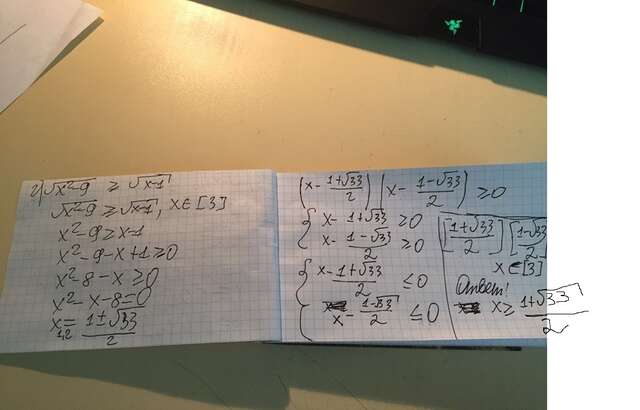 2) √x²-9 ≥ √x-1
√x²-9 ≥ √x-1, x∈[3]
x²-9≥x-1
x²-9-x+1≥0
x²-8-x≥0
x²-x-8=0
x₁,₂=(1±√33)/2
(x-(1+√33)/2)(x-(1-√33)/2)≥0
{ x-(1+√33)/2 ≥0
x-(1-√33)/2 ≥0
{ (x-1+√33)/2 ≤0
x-(1-√33)/2 ≤0
[(1+√33)/2] [(1-√33)/2]
x∈[3]
Ответ!
x≥(1+√33)/2